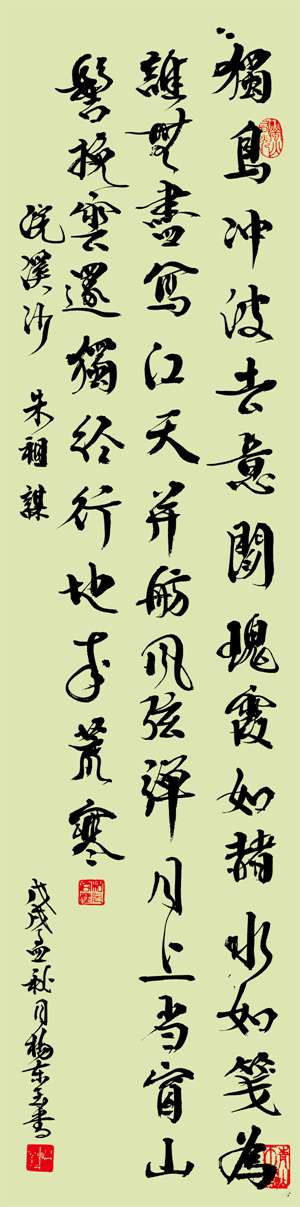 獨鳥冲波去意閒瑰霞如赭水如箋為
誰無盡寫江天并舫風弦彈月上当窗山
髻挽雲還獨經行地未荒寒
浣溪沙 朱祖謀
戊戌孟秋月 东玉書